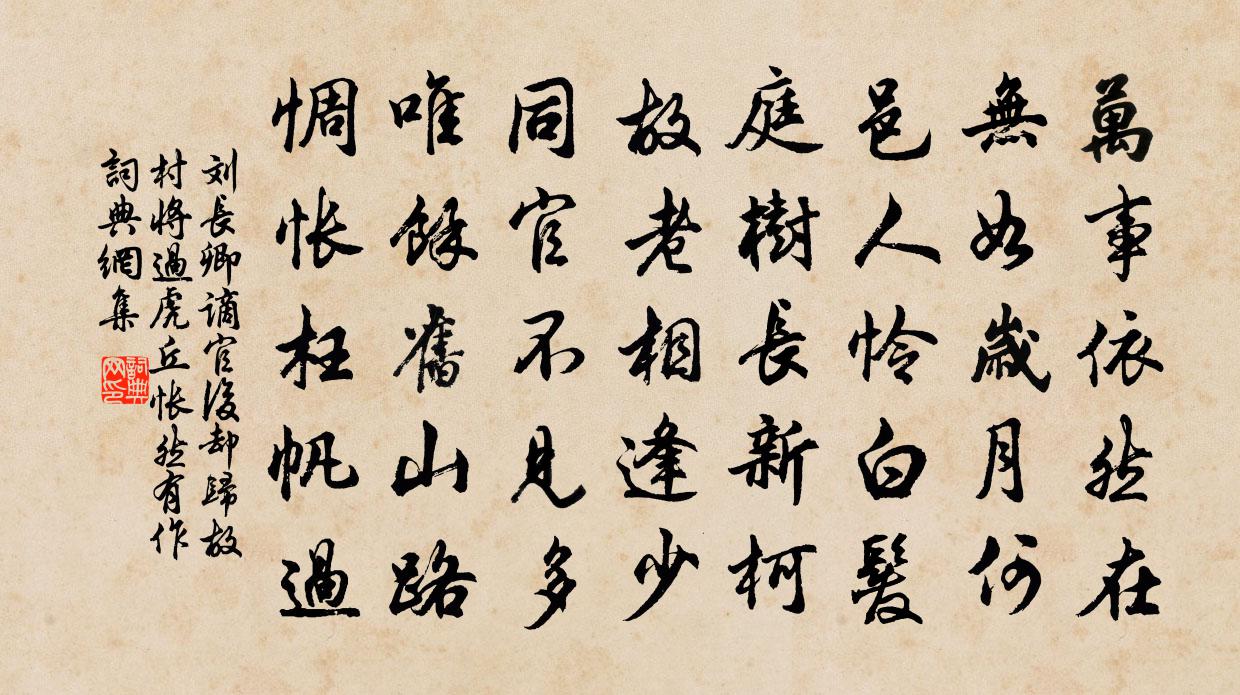 萬事依然在
無如歲月何
邑人怜白髮
庭樹長新柯
故老相逢少
同官不見多
唯餘舊山路
惆悵枉帆過
刘長卿謫官後却歸故
村將過虎丘悵然有作
詞典網集
詞典
网印